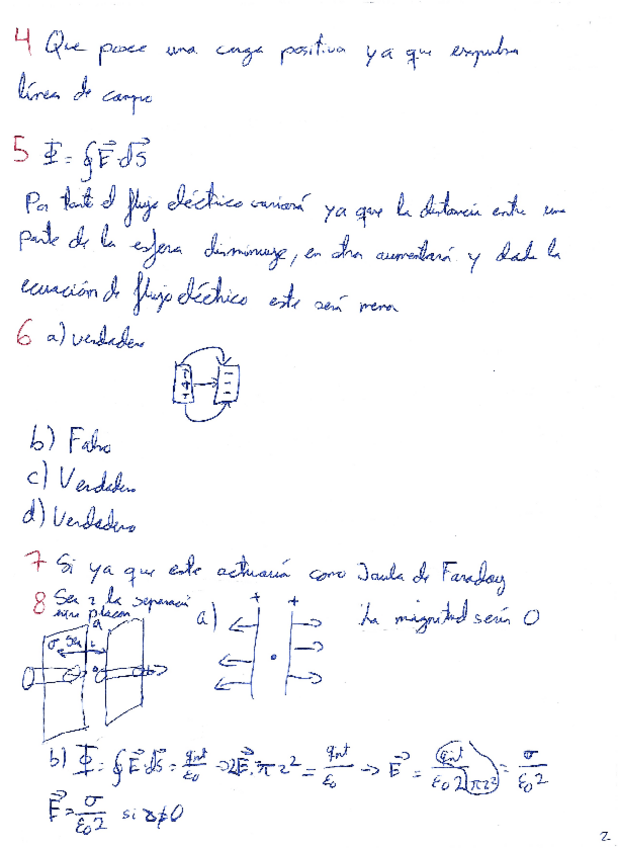 4 Que posee una carga positiva ya que expulsa
línea de campo
5 Φ = ∮E⃗·dS⃗
Por tanto el flujo eléctrico variará ya que la distancia entre una
parte de la esfera disminuye, en otra aumentará y dada la
ecuación de flujo eléctrico este será menor
6 a) verdadero
+ + + - - -
b) Falso
c) Verdadero
d) Verdadero
7 Si ya que este actuaría como Jaula de Faraday
8 Sea z la separación
placas
a) + + La magnitud sería 0
σ
b) Φ = ∮E⃗·dS⃗ = qint/ε0 → 2E⃗·πz² = qint/ε0 → E⃗ = qint/ε0 2πz² = σ/ε0 2
E⃗ = σ/ε0 2 si ≠0
2